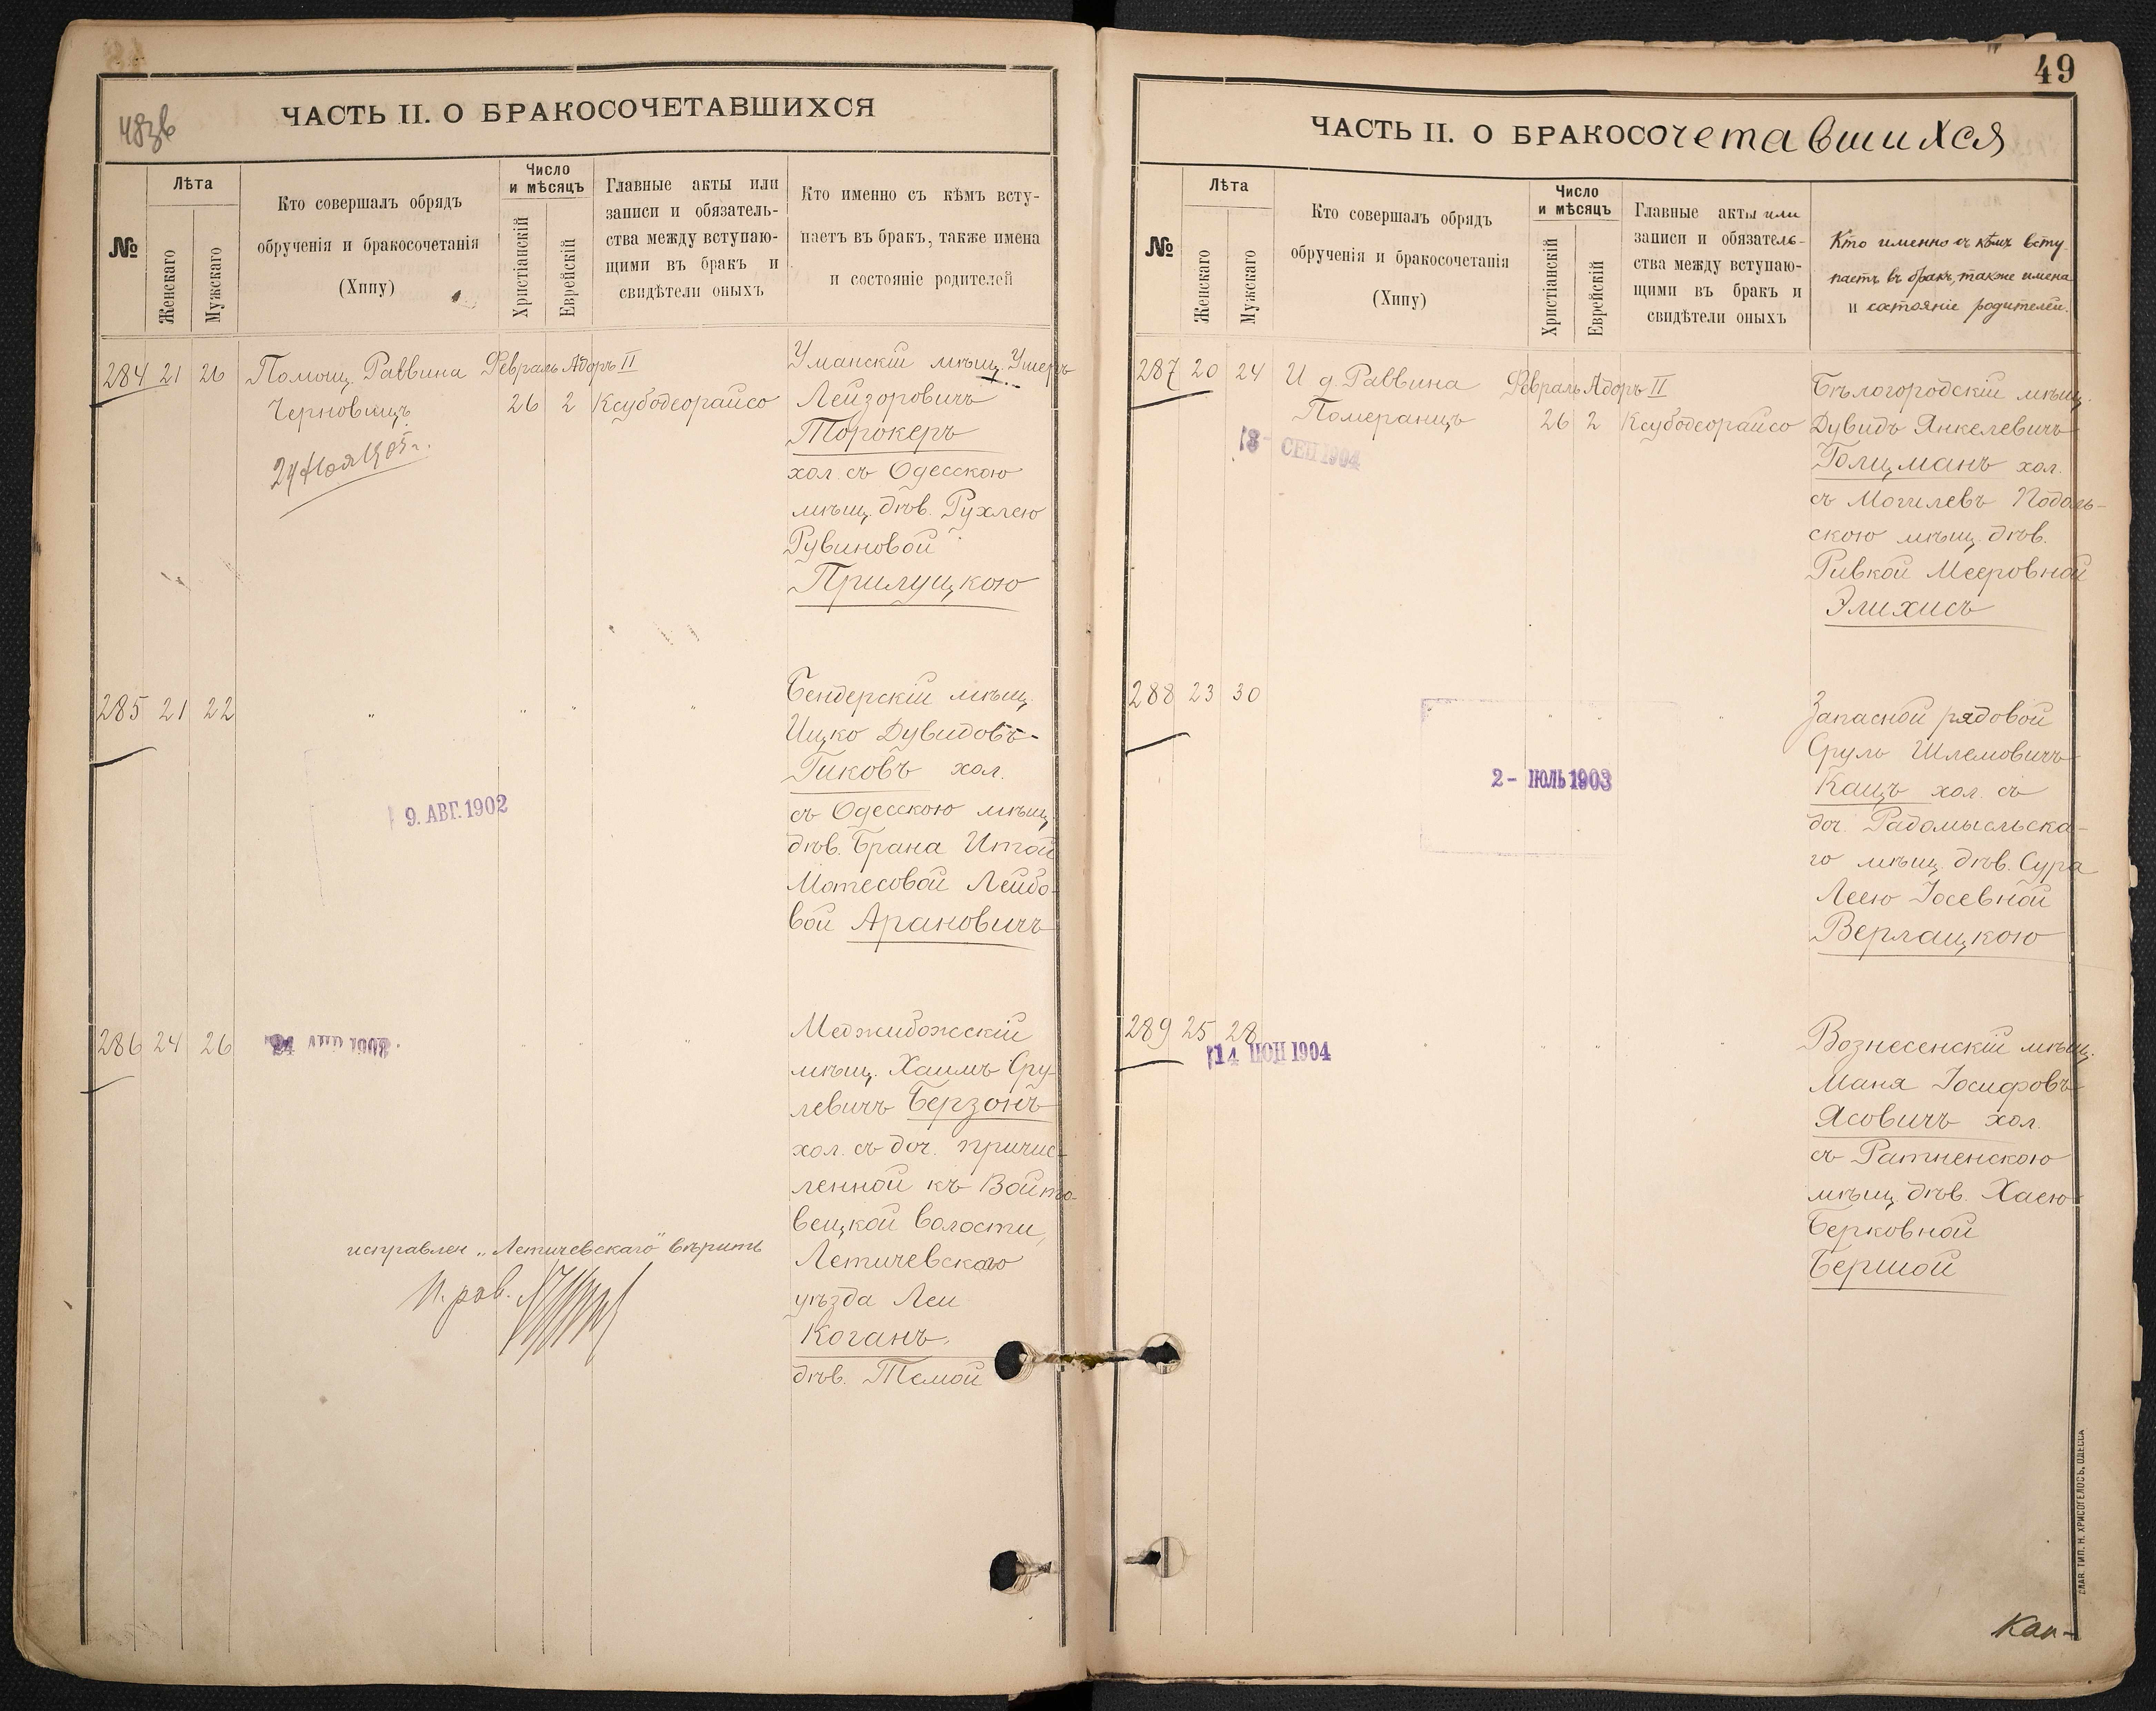 48зв
ЧАСТЬ II. О БРАКОСОЧЕТАВШИХСЯ
№
Лѣта
Женскаго
Мужскаго
Кто совершалъ обрядъ
обрученія и бракосочетанія
(Хипу)
Число
и мѣсяцъ
Христіанскій
Еврейскій
Главные акты или
записи и обязатель-
ства между вступаю-
щими въ бракъ и
свидѣтели оныхъ
Кто именно съ кѣмъ всту-
паетъ въ бракъ, также имена
и состояніе родителей
284 21 26 Помощ. Раввина Февраль Адоръ II
Черновицъ 26 2 Ксубодеорайсо
24 Ноя 1905 г.
Уманскій мѣщ. Ушеръ
Лейзоровичъ
Торокеръ
хол. съ Одесскою
мѣщ. дѣв. Рухлею
Рувиновой
Прилуцкою
285 21 22 " " " "
9. АВГ. 1902
Бендерскій мѣщ.
Ицко Дувидовъ-
Гиковъ хол.
съ Одесскою мѣщ.
дѣв. Брана Итой
Мотесовой Лейбо-
вой Арановичъ
286 24 26
Меджибожскій
мѣщ. Хаимъ Сру-
левичъ Берзонъ
хол. съ доч. причис-
ленной къ Войто-
вецкой волости,
Летичевского
уѣзда Леи
Коганъ,
дѣв. Темой
исправлен „Летичевскаго" вѣрить
И. рав.
49
ЧАСТЬ II. О БРАКОСОчетавшихся
№
Лѣта
Женскаго
Мужскаго
Кто совершалъ обрядъ
обрученія и бракосочетанія
(Хипу)
Число
и мѣсяцъ
Христіанскій
Еврейскій
Главные акты или
записи и обязатель-
ства между вступаю-
щими въ бракъ и
свидѣтели оныхъ
Кто именно съ кѣмъ всту
паетъ въ бракъ, также имена
и состояніе родителей.
287 20 24 И д. Раввина Февраль Адоръ II
Померанцъ 26 2 Ксубодеорайсо
СЕП 1904
Бѣлогородскій мѣщ.
Дувидъ Янкелевичъ
Голцманъ хол.
съ Могилевъ Подоль-
скою мѣщ. дѣв.
Ривкой Мееровной
Элихисъ
288 23 30 " " "
2 - ІЮЛЬ 1903
Запасной рядовой
Сруль Шлемовичъ
Кацъ хол. съ
доч. Радомысльска-
го мѣщ. дѣв. Сура
Леею Іосевной
Верлацкою
289 25 28 " " "
14 ІЮН 1904
Вознесенскій мѣщ.
Маня Іосифовъ
Ясовичъ хол.
съ Ратненскою
мѣщ. дѣв. Хаею
Берковной
Бершой
ГЛАВ. ТИП. Н. ХРИСОГЕЛОСЪ, ОДЕССА
Кап-